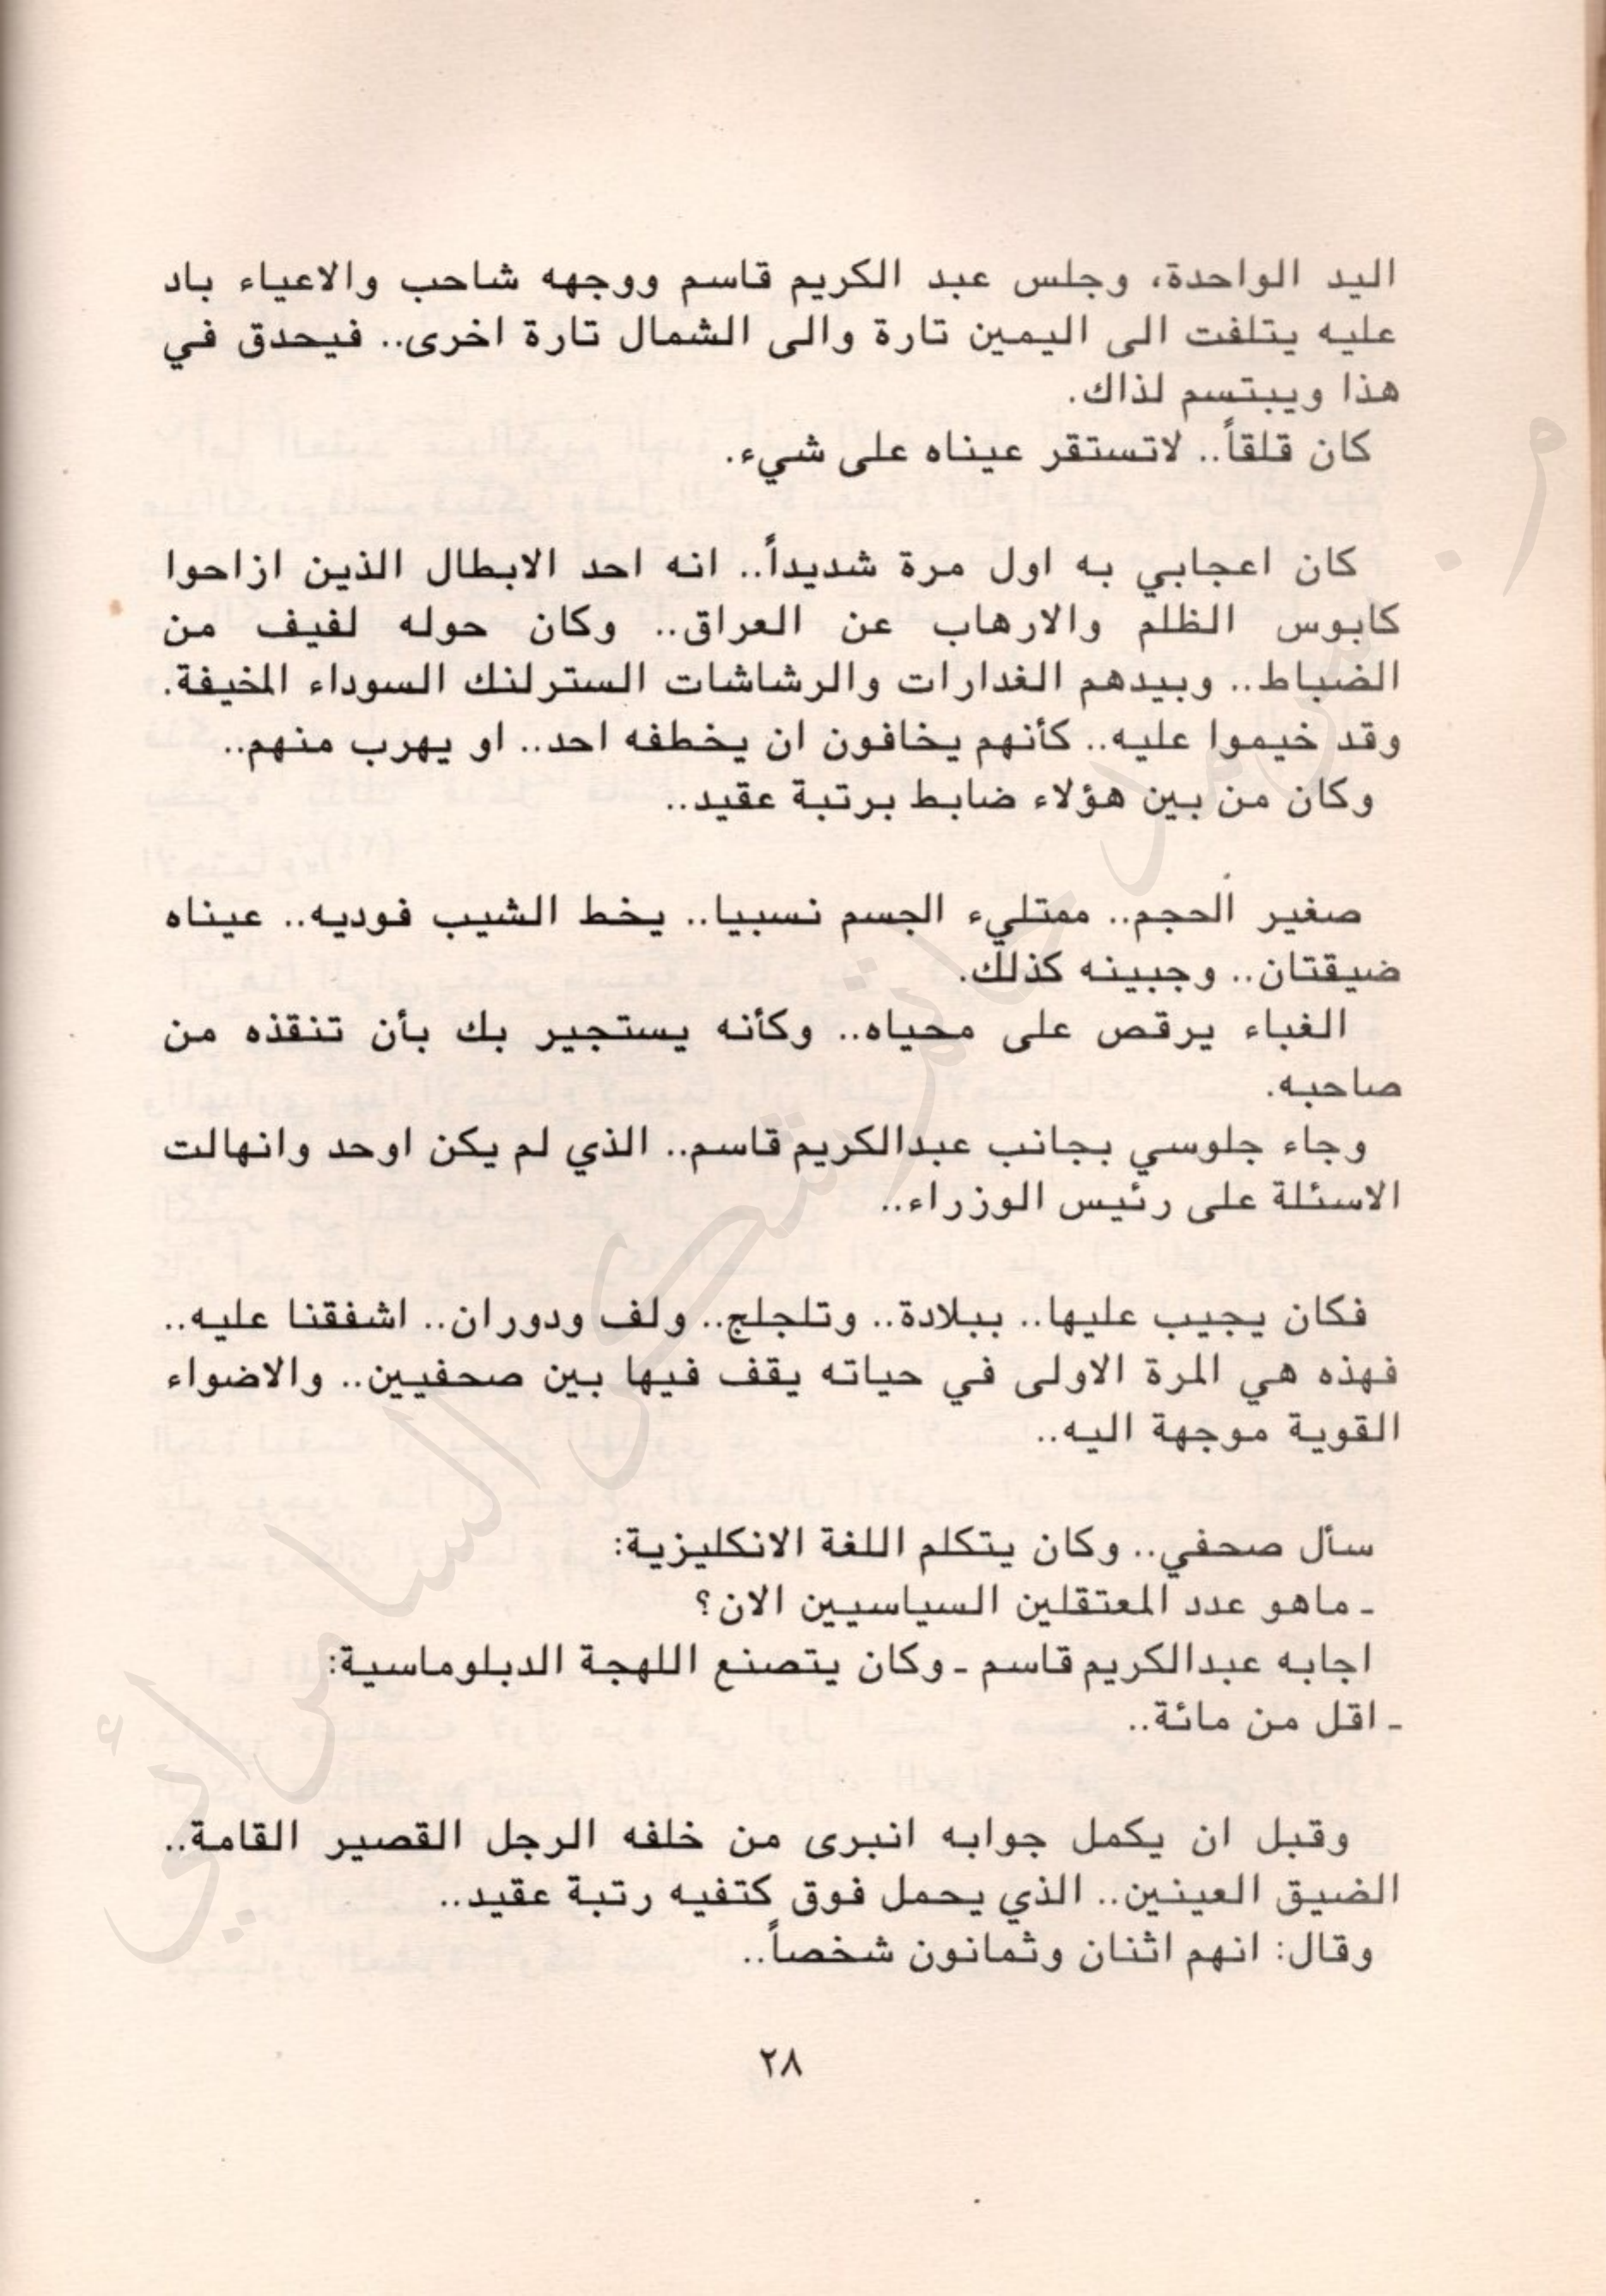 اليد الواحدة، وجلس عبد الكريم قاسم ووجهه شاحب والاعياء باد
عليه يتلفت الى اليمين تارة والى الشمال تارة اخرى.. فيحدق في
هذا ويبتسم لذاك.
كان قلقاً.. لاتستقر عيناه على شيء.
كان اعجابي به اول مرة شديداً.. انه احد الابطال الذين ازاحوا
كابوس الظلم والارهاب عن العراق.. وكان حوله لفيف من
الضباط.. وبيدهم الغدارات والرشاشات السترلنك السوداء المخيفة.
وقد خيموا عليه.. كأنهم يخافون ان يخطفه احد.. او يهرب منهم..
وكان من بين هؤلاء ضابط برتبة عقيد..
صغير الحجم.. ممتليء الجسم نسبيا.. يخط الشيب فوديه.. عيناه
ضيقتان.. وجبينه كذلك.
الغباء يرقص على محياه.. وكأنه يستجير بك بأن تنقذه من
صاحبه.
وجاء جلوسي بجانب عبدالكريم قاسم.. الذي لم يكن اوحد وانهالت
الاسئلة على رئيس الوزراء..
فكان يجيب عليها.. ببلادة.. وتلجلج.. ولف ودوران.. اشفقنا عليه..
فهذه هي المرة الاولى في حياته يقف فيها بين صحفيين.. والاضواء
القوية موجهة اليه..
سأل صحفي.. وكان يتكلم اللغة الانكليزية:
ـ ماهو عدد المعتقلين السياسيين الان؟
اجابه عبدالكريم قاسم ـ وكان يتصنع اللهجة الدبلوماسية:
ـ اقل من مائة..
وقبل ان يكمل جوابه انبرى من خلفه الرجل القصير القامة..
الضيق العينين.. الذي يحمل فوق كتفيه رتبة عقيد..
وقال: انهم اثنان وثمانون شخصاً..
٢٨